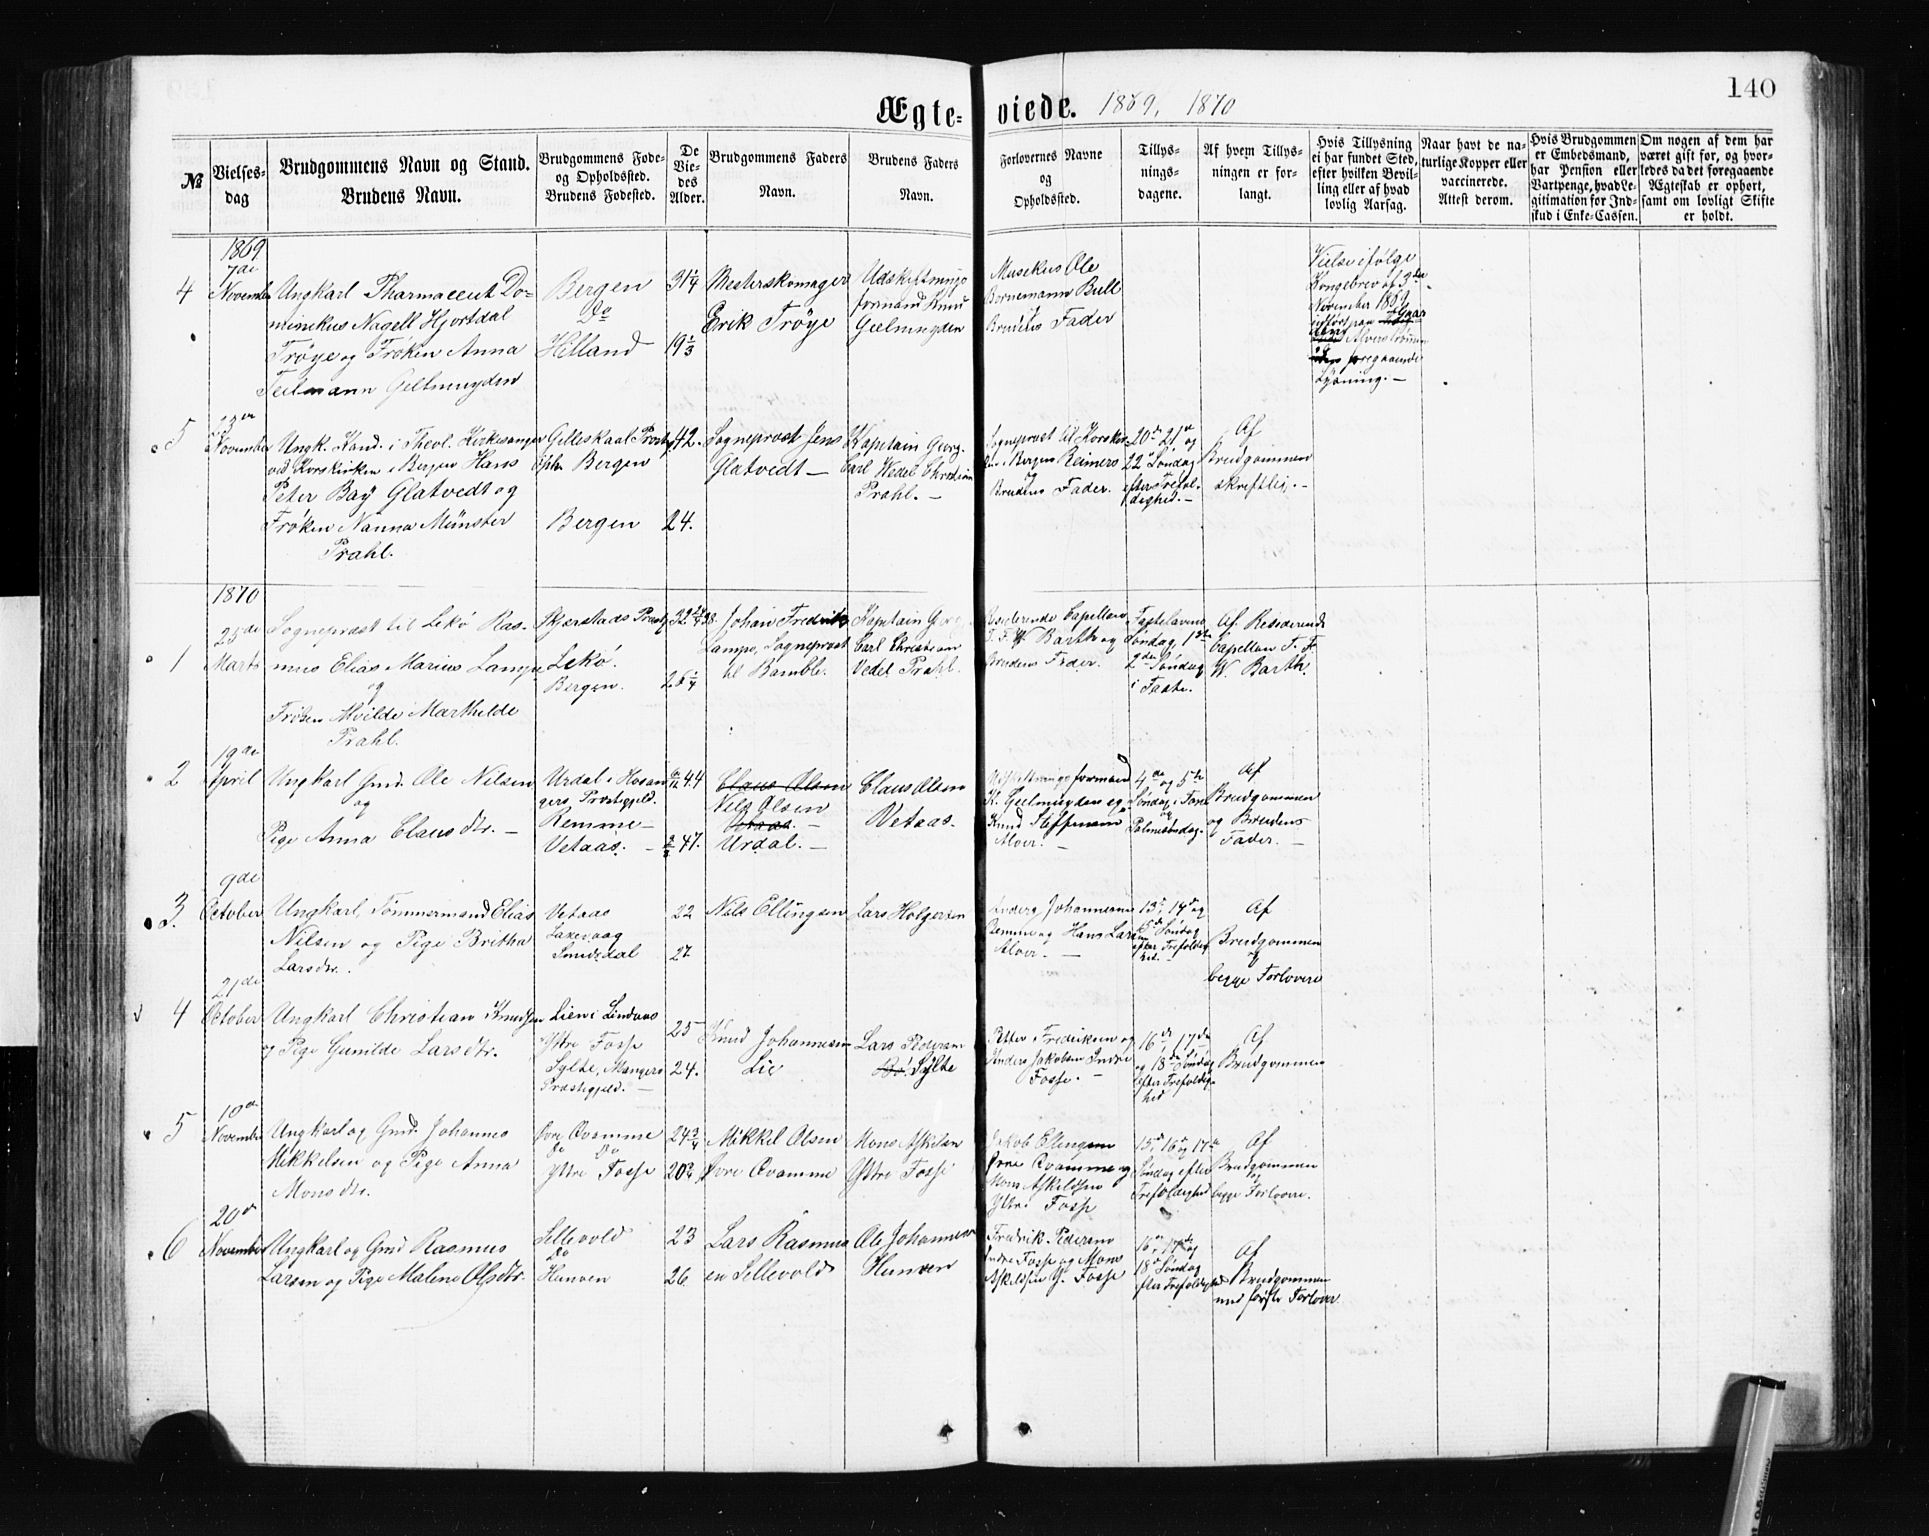 140
Ægteviede. 1869, 1870
№
Vielses-
dag
Brudgommens Navn og Stand.
Brudens Navn.
Brudgommens Føde-
og Opholdssted.
Brudens Fødested.
De
Vie-
des
Alder.
Brudgommens Faders
Navn.
Brudens Faders
Navn.
Forlovernes Navne
og
Opholdssted.
Tillys-
nings-
dagene.
Af hvem Tillys-
ningen er for-
langt.
Hvis Tillysning
ei har fundet Sted,
efter hvilken Bevil-
ling eller af hvad
lovlig Aarsag.
Naar havt de na-
turlige Kopper eller
vaccinerede.
Attest derom.
Hvis Brudgommen
er Embedsmand,
har Pension eller
Vartpenge, hvad Le-
gitimation for Ind-
skud i Enke-Cassen.
Om nogen af dem har
været gift før, og hvor-
ledes da det foregaaende
Ægteskab er ophørt,
samt om lovligt Skifte
er holdt.
1869
4
7de
November
Ungkarl Pharmaceut Do-
minikus Nagell Hjortdal
Trøye og Frøken Anna
Teilmann Geelmuyden
Bergen
Do
Helland
31 1/4
19 1/3
Mesterskomager
Erik Trøye
Udskiftnings
formand Knud
Geelmuyden
Musikus Ole
Bornemann Bull
Brudens Fader
Vielse ifølge
Kongebrev af 3de
November 1869
Alverstrømmen
foregaaende
Lysning. —
5
23de
November
Ungk. Kand. i Theol. Kirkesanger
ved Korskirken i Bergen Hans
Peter Bay Glatvedt og
Frøken Nanna Münster
Prahl.
Gilleskaal Præstg
Ophs Bergen
Bergen
42.
24.
Sogneprest Jens
Glatvedt —
Kapitain Georg
Carl Wedel Christian
Prahl. —
Sogneprest til Korskir-
ken i Bergen Reimers
og
Brudens Fader.
20de 21de og
22de Søndag
efter Trefol-
dighed. —
Af
Brudgommen
skriftlig. —
1870
1
25de
Marts
Sogneprest til Lekø Ras-
mus Elias Marius Lampe
og
Frøken Alvilde Marthilde
Prahl.
Skjerstads Præstg
Lekø.
Bergen.
Johan Fredrik
Lampe, Sogneprest
til Bamble.
Kapitain Georg
Carl Christian
Vedel Prahl.
Residerende Capellan
J. F. W. Barth og
Brudens Fader.
Fastelavns
Søndag, 1ste
2den Søndag
i Faste.
Af Residerende
Capellan J. F.
W. Barth.
2
19de
April
Ungkarl Gmd. Ole Nilsen
og
Pige Anna Clausdtr. —
Urdal i Hosan
gers Præstegjeld.
Remme —
Vetaas. —
44
47.
Claus Olsen
Nils Olsen
Vetaas. —
Urdal. —
Claus Olsen
Vetaas.
Udskiftningsformand
K. Geelmuyden og
Knud Steffensen
Alver. —
4de og 5te
Søndag i Faste
og
Palmesøndag.
Af
Brudgommen
og Brudens
Fader. —
3.
9de
October
Ungkarl, Tømmermand Elias
Nilsen og Pige Britha
Larsdtr.
Vetaas
Laxevaag
Smidedal
22
27
Nils Ellingsen
Lars Holgersen
Anders Johannesen
Remme og Hans Larsen
Alver. —
13de, 14de og
15de Søndag
efter Trefoldig
hed. —
Af
Brudgommen
og
begge Forlovere
4
21de
October
Ungkarl Christian Knudsen
og Pige Gunilde Larsdtr.
Lien i Lindaas
Ytre Fosse
Sylte, Mangers
Præstegjeld. —
25
24.
Knud Johannesen
Lie
Lars Pedersen
Bø Sylte
Petter Fredriksen og
Anders Jakobsen Indre
Fosse. —
16de, 17de
og 18de Søndag
efter Trefoldig-
hed
Af
Brudgommen
5
10de
November
Ungkarl og Gmd. Johannes
Mikkelsen og Pige Anna
Monsdtr.
Øvre Qvamme
Do Do
Ytre Fosse
24 3/4
20 3/4
Mikkel Olsen
Øvre Qvamme
Mons Askilsen
Ytre Fosse
Jakob Ellingsen
Øvre Qvamme og
Mons Askildsen
Ytre Fosse
15de, 16de og 17de
Søndag efter
Trefoldighed
Af
Brudgommen
og
begge Forlovere.
6
20de
November
Ungkarl og Gmd Rasmus
Larsen og Pige Malene Olsdtr.
Sellevold
Do
Hunven
23
26
Lars Rasmus
en Sellevold
Ole Johannesen
Hunven
Fredrik Pedersen
Indre Fosse og Mons
Askildsen Y. Fosse
16de, 17de og
18de Søndag
efter Trefoldighed
Af
Brudgommen
med første Forlover